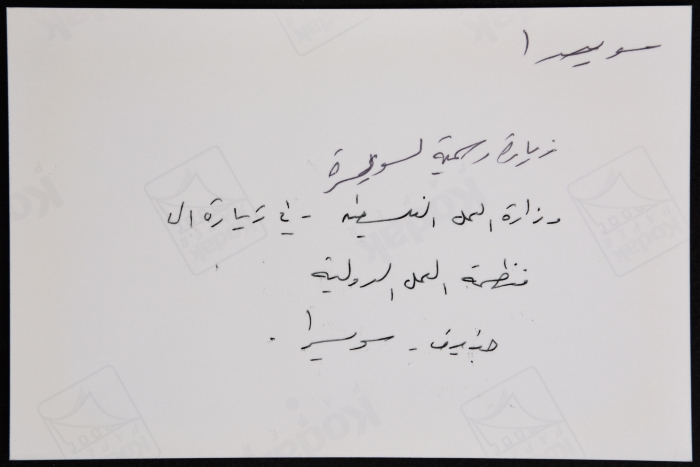 سويسرا
زيارة رسمية لسويسرة
وزارة العمل الفلسطينية - في زيارة الى
منظمة العمل الدولية
جنيف - سويسرا .
Kodak
Kodak
Kodak